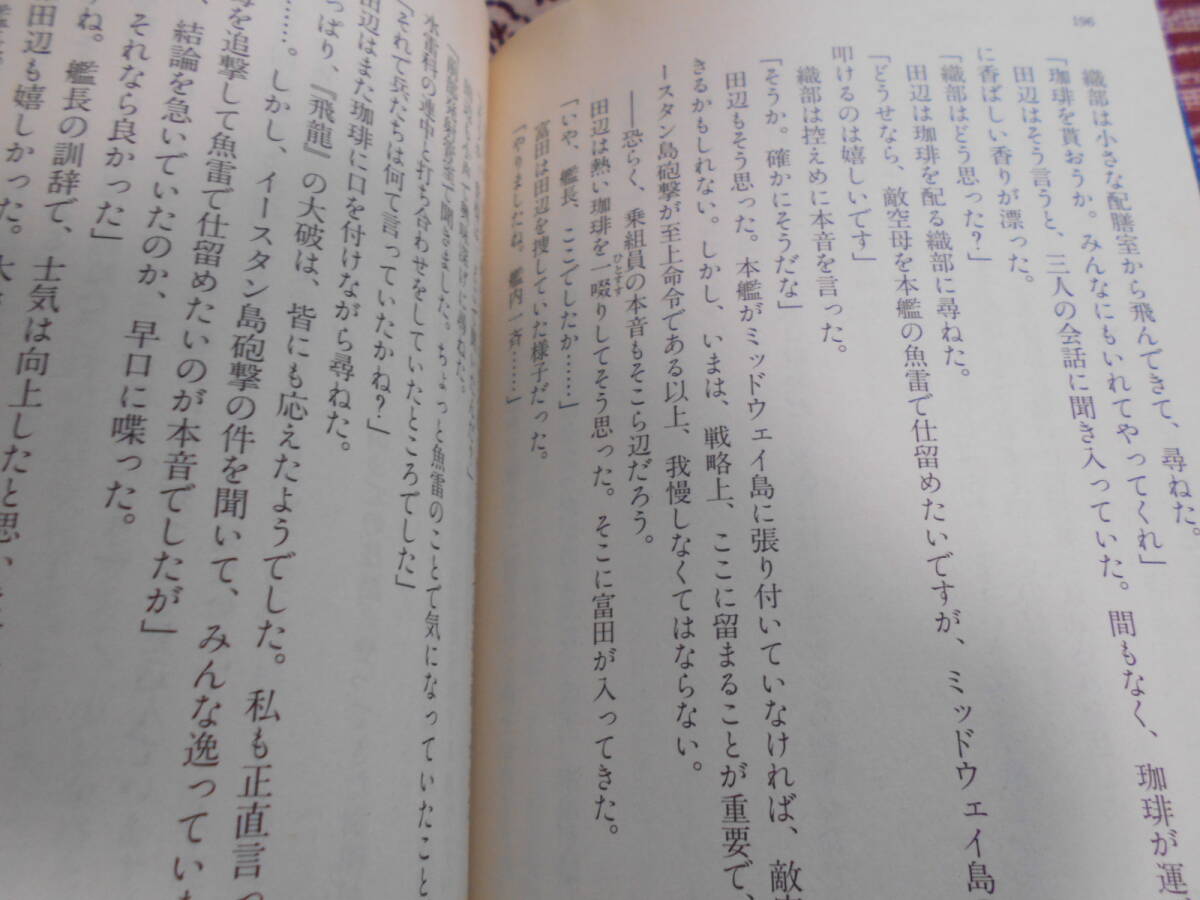 196
織部は小さな配膳室から飛んできて、尋ねた。
「珈琲を貰おうか。みんなにもいれてやってくれ」
田辺はそう言うと、三人の会話に聞き入っていた。間もなく、珈琲が運
に香ばしい香りが漂った。
「織部はどう思った?」
田辺は珈琲を配る織部に尋ねた。
「どうせなら、敵空母を本艦の魚雷で仕留めたいですが、ミッドウェイ島
叩けるのは嬉しいです」
織部は控えめに本音を言った。
「そうか。確かにそうだな」
田辺もそう思った。本艦がミッドウェイ島に張り付いていなければ、敵
きるかもしれない。しかし、いまは、戦略上、ここに留まることが重要で、
ースタン島砲撃が至上命令である以上、我慢しなくてはならない。
――恐らく、乗組員の本音もそこら辺だろう。
田辺は熱い珈琲を一啜りしてそう思った。そこに富田が入ってきた。
「いや、艦長、ここでしたか……」
富田は田辺を捜していた様子だった。
「やりましたね。艦内一斉……」
聞きました。ちょっと魚雷のことで気になっていたこと
水雷科の連中と打ち合わせをしていたところでした」
「それで兵たちは何て言っていたかね?」
田辺はまた珈琲に口を付けながら尋ねた。
っぱり、『飛龍』の大破は、皆にも応えたようでした。私も正直言っ
……。しかし、イースタン島砲撃の件を聞いて、みんな逸ってい
を追撃して魚雷で仕留めたいのが本音でしたが」
、結論を急いでいたのか、早口に喋った。
それなら良かった」
ね。艦長の訓辞で、士気は向上したと思い
田辺も嬉しかった。